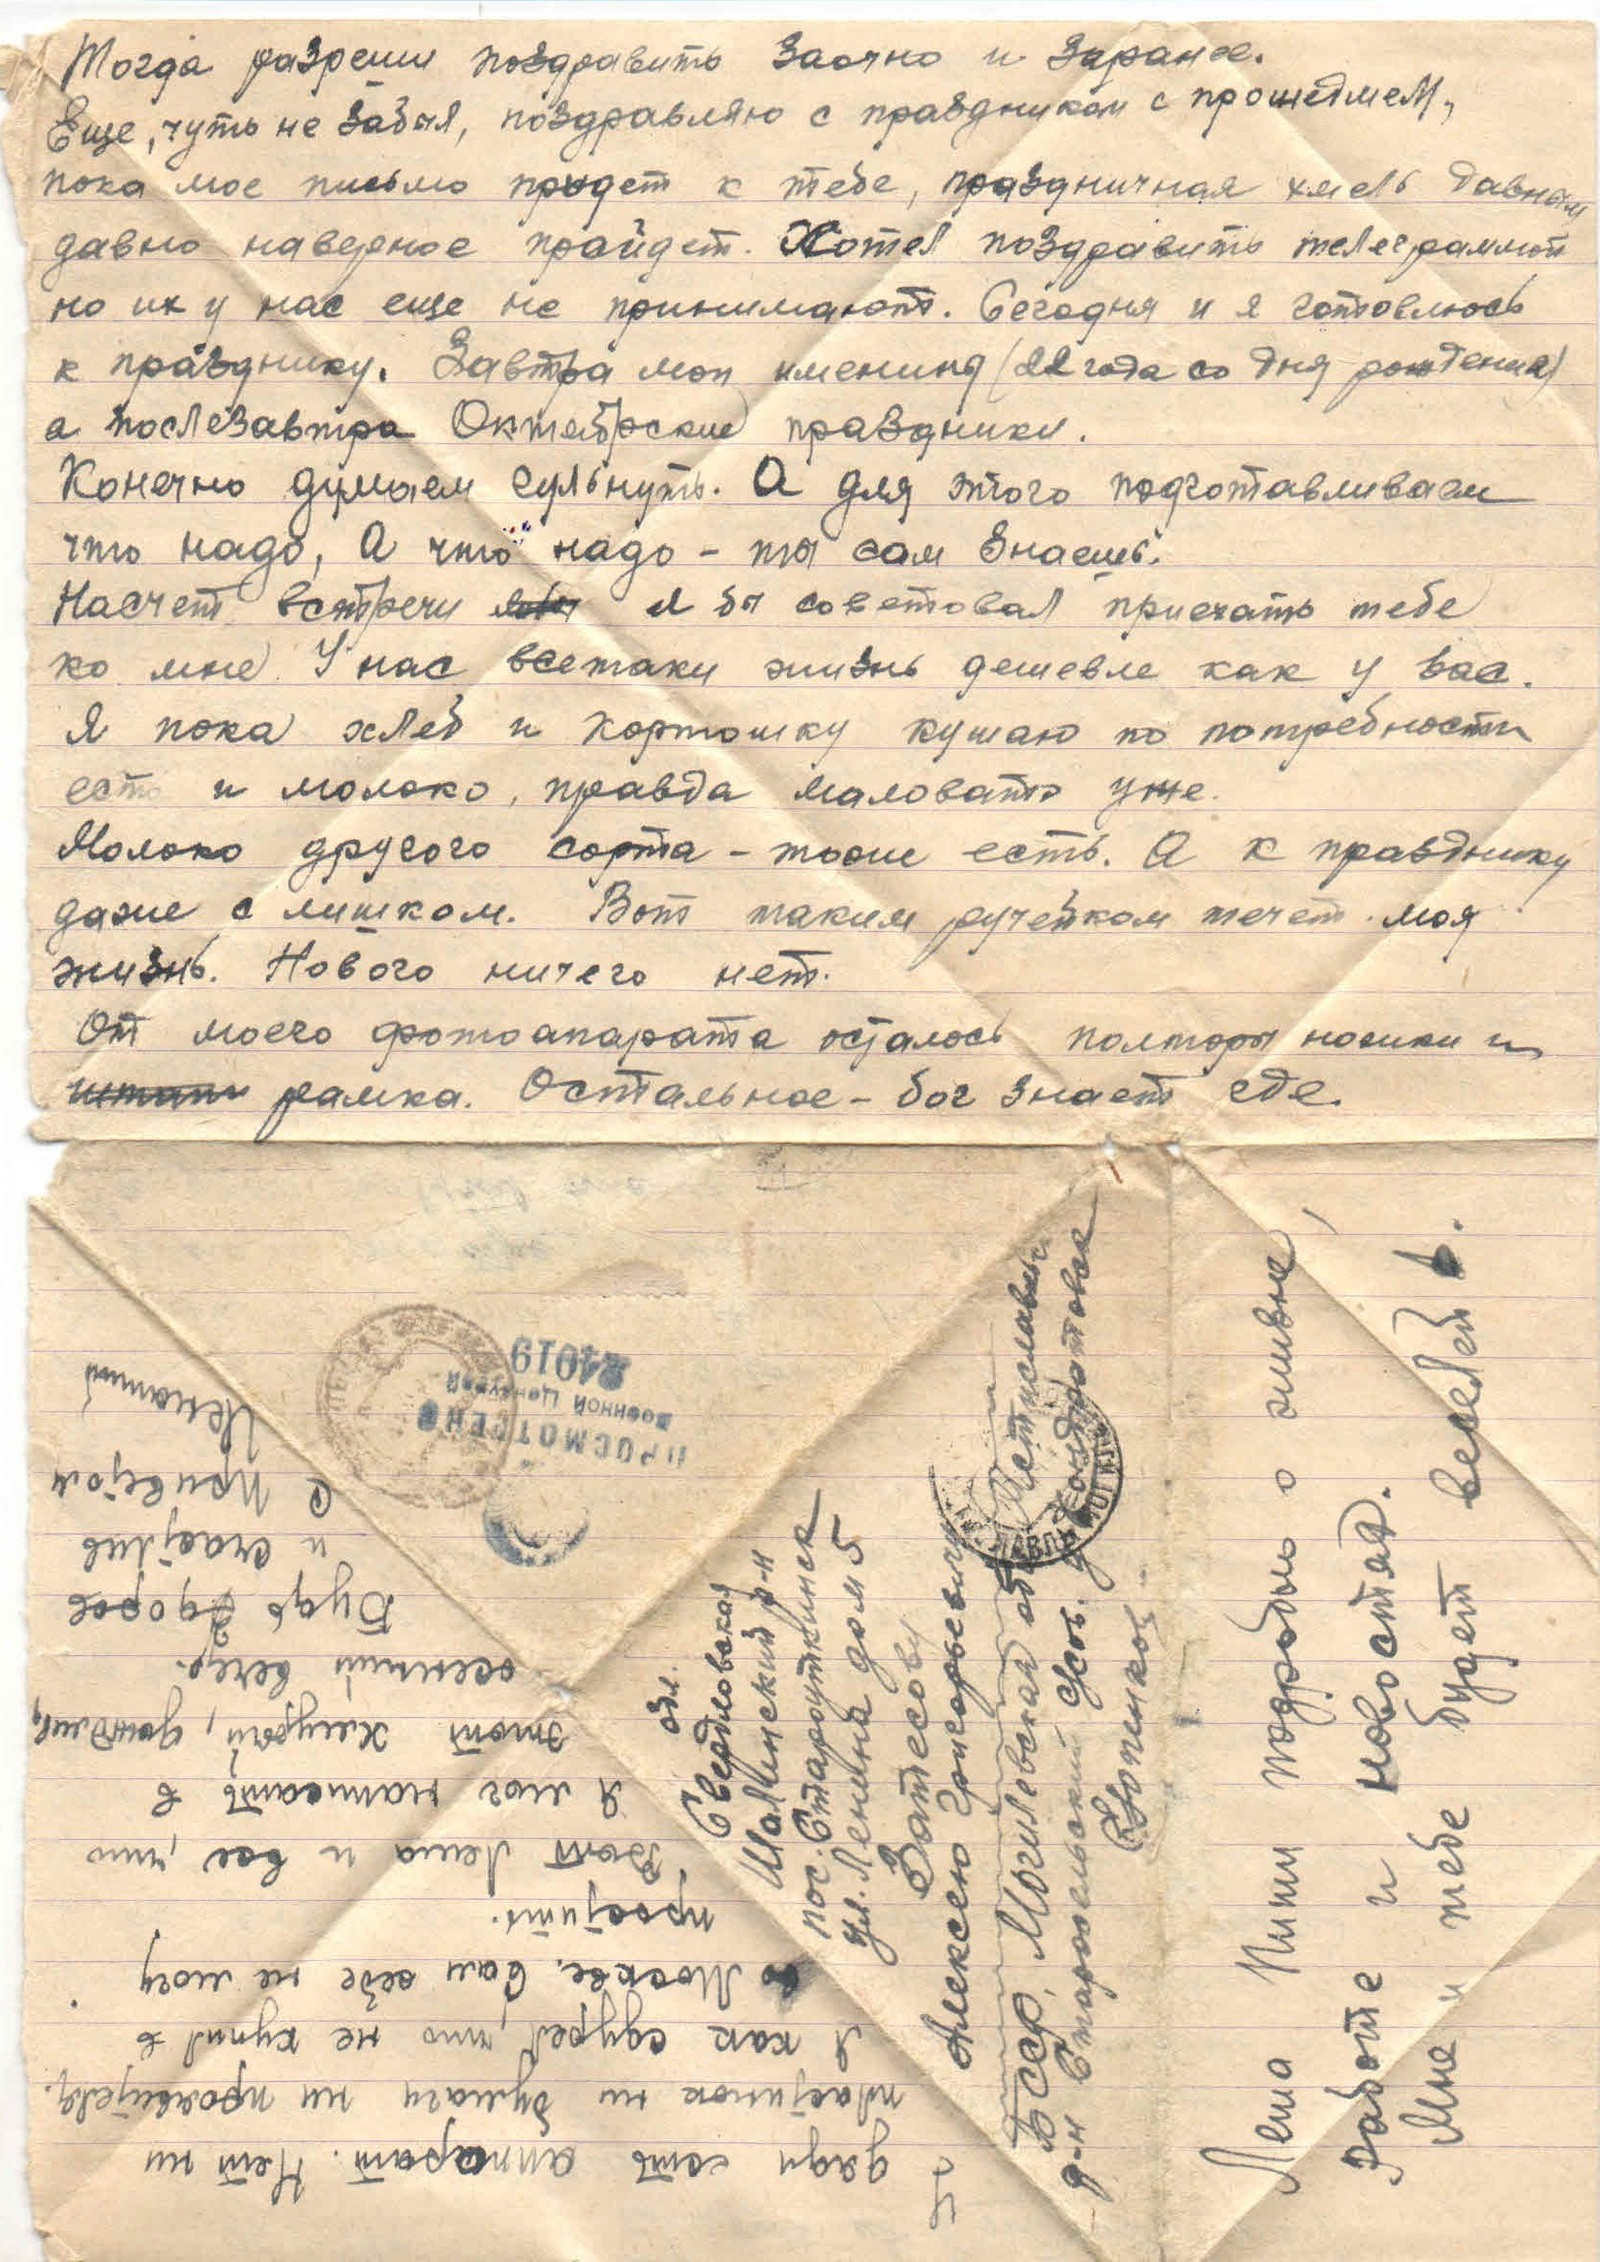 Тогда разреши поздравить заочно и заранее.
Еще, чуть не забыл, поздравляю с праздником с прошедшем,
пока мое письмо придет к тебе, праздничная хмель давным
давно наверное пройдет. Хотел поздравить телеграммой
но их у нас еще не принимают. Сегодня и я готовлюсь
к празднику. Завтра мои именины (22 года со дня рождения)
а послезавтра Октябрские праздники.
Конечно думаем гульнуть. А для этого подготавливаем
что надо, А что надо - ты сам знаешь.
Насчет встречи я бы советовал приехать тебе
ко мне. У нас всетаки жизнь дешевле как у вас.
Я пока хлеб и картошку кушаю по потребности
есть и молоко, правда маловато уже.
Молоко другого сорта - тоже есть. А к празднику
даже с лишком. Вот таким ручейком течет моя
жизнь. Нового ничего нет.
От моего фотоапарата осталось полторы ножки и
рамка. Остальное - бог знает где.
У
дяди есть аппарат. Нет ни
пластинок ни бумаги ни проявителя.
Я как сдурел, что не купил в
Москве. Сам себе не могу
простить.
Вот Леша и все, что
я мог написать в
этот хмурый, дождлив,
осенний вечер.
Будь здоров
и счастлив
С приветом
ПРОСМОТРЕНО
Военной Цензурой
24019
обл.
Свердловская
Шалинский р-н
пос. Староуткинск
ул. Ленина дом 5
Затесову
Алексею Григорьевичу
БССР, Могилевская обл. Мстиславль
р-н Старосельский с/сов. д. Кондратовка
Леша Пиши подробно о жизне,
работе и новостях.
Мне и тебе будет веселей.